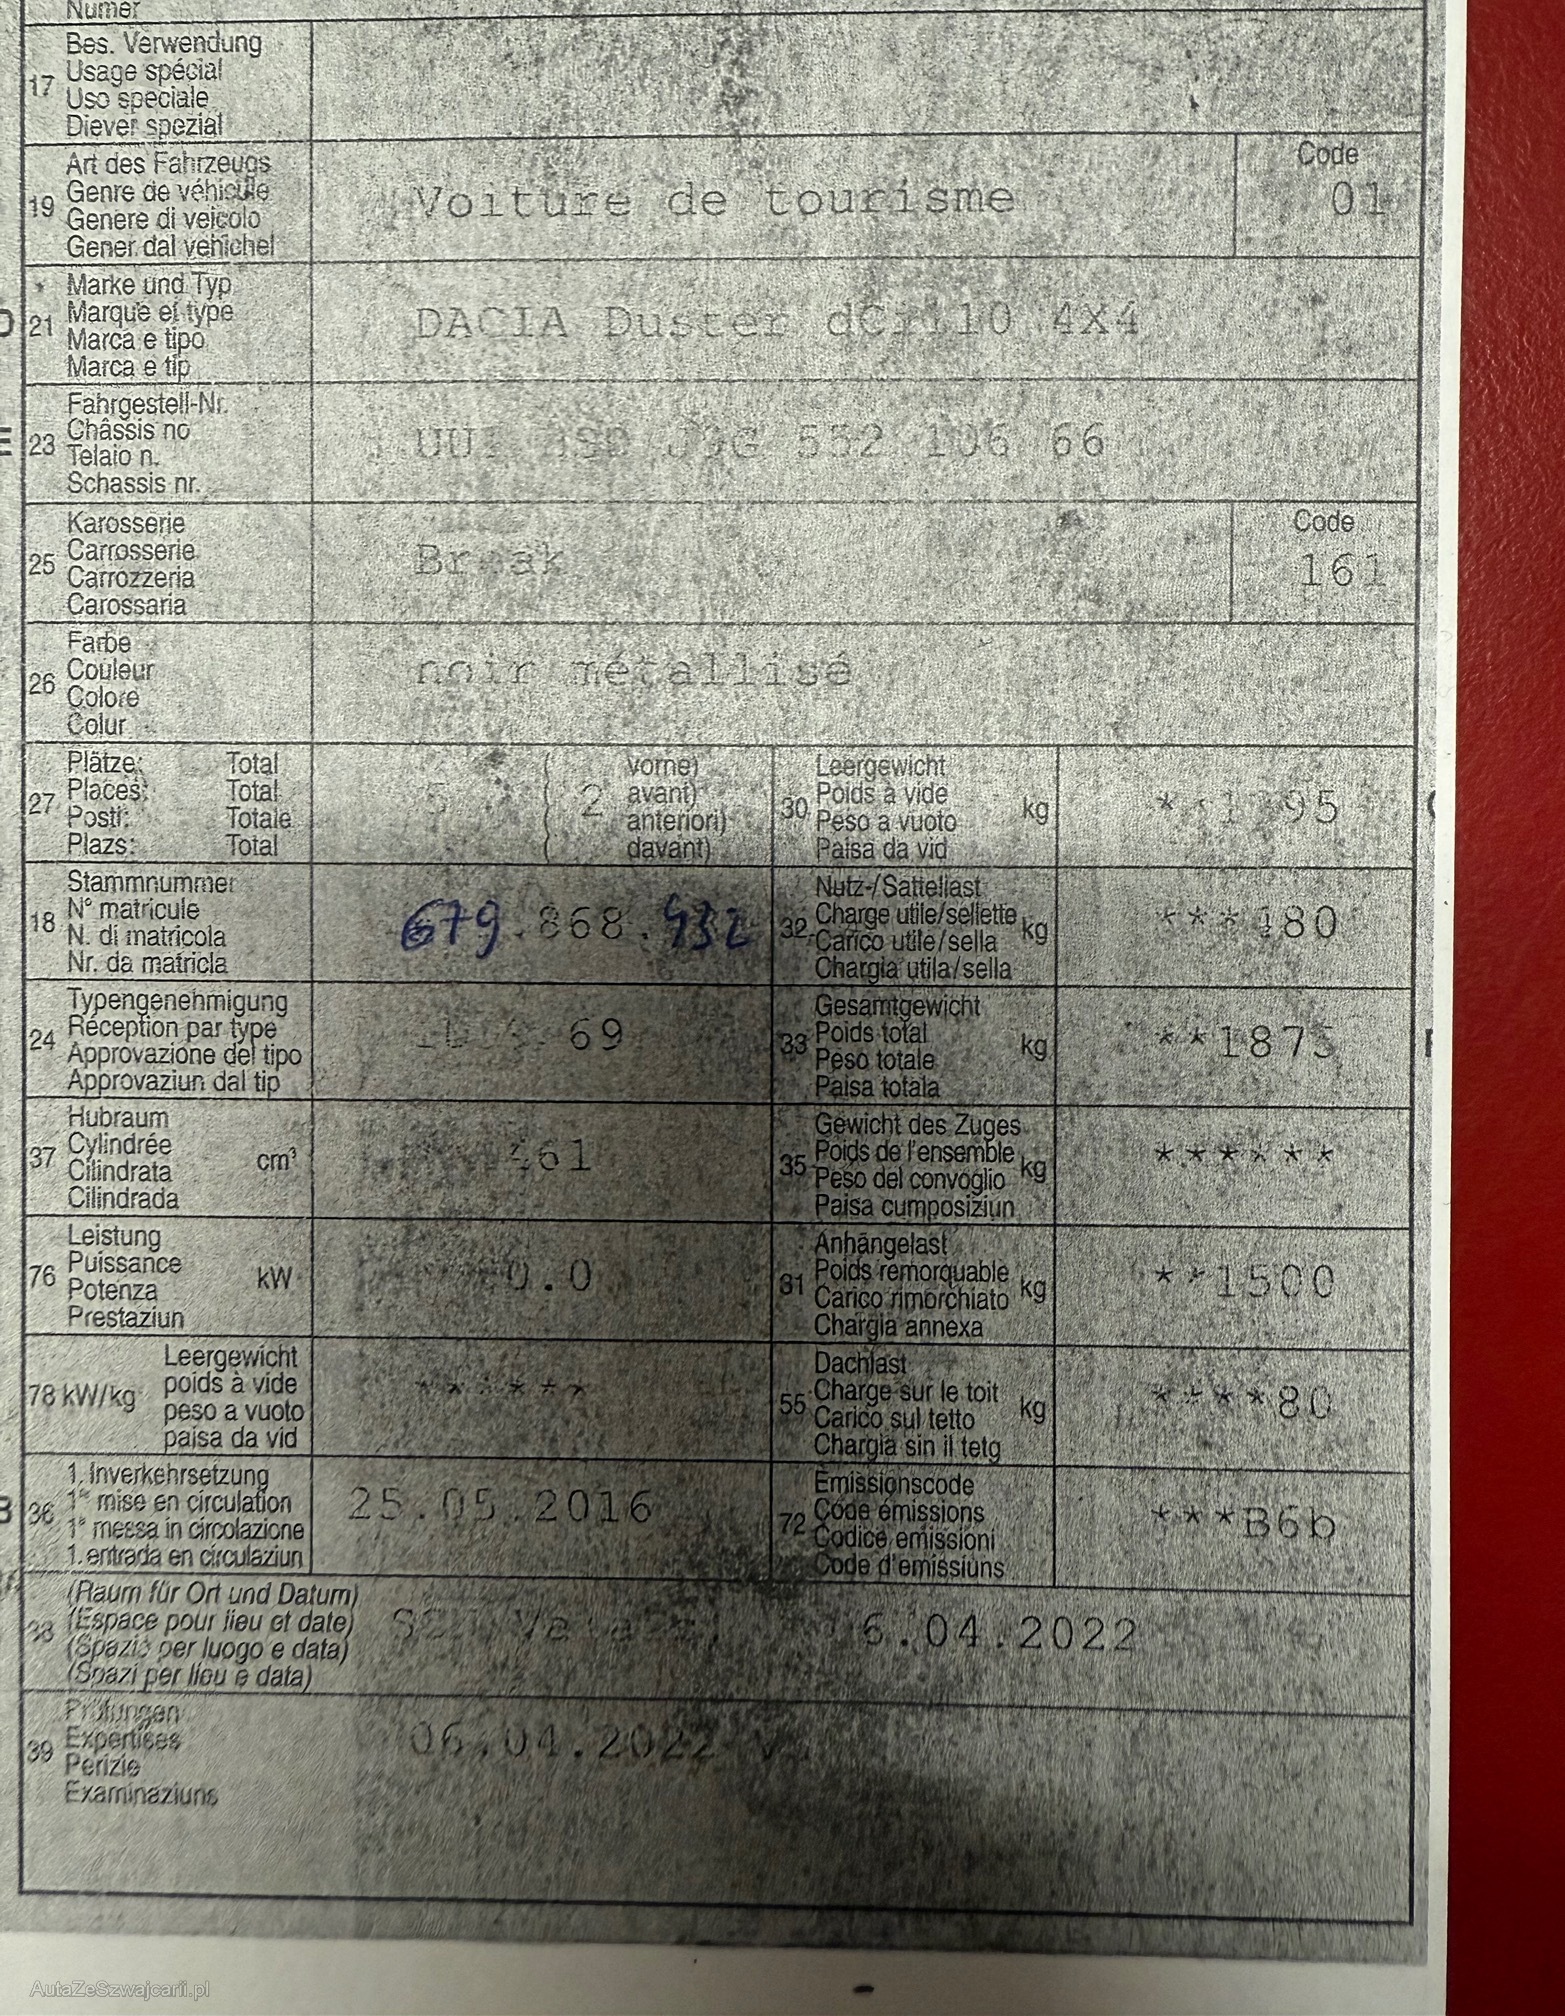 Numer
17
Bes. Verwendung
Usage spécial
Uso speciale
Diever spezial
19
Art des Fahrzeugs
Genre de véhicule
Genere di veicolo
Gener dal vehichel
Voiture de tourisme
Code
01
21
Marke und Typ
Marque et type
Marca e tipo
Marca e tip
DACIA Duster dCi110 4X4
23
Fahrgestell-Nr.
Châssis no
Telaio n.
Schassis nr.
552 106 66
25
Karosserie
Carrosserie
Carrozzeria
Carossaria
Break
Code
161
26
Farbe
Couleur
Colore
Colur
noir métallisé
27
Plätze: Total
Places: Total
Posti: Totale
Plazs: Total
5 ( 2
vorne)
avant)
anteriori)
davant)
30
Leergewicht
Poids à vide
Peso a vuoto
Paisa da vid
kg
18
Stammnummer
N° matricule
N. di matricola
Nr. da matricla
679.868.932
32
Nutz-/Sattellast
Charge utile/sellette
Carico utile/sella
Chargia utila/sella
kg
***480
24
Typengenehmigung
Réception par type
Approvazione del tipo
Approvaziun dal tip
69
33
Gesamtgewicht
Poids total
Peso totale
Paisa totala
kg
**1875
37
Hubraum
Cylindrée
Cilindrata
Cilindrada
cm³
461
35
Gewicht des Zuges
Poids de l'ensemble
Peso del convoglio
Paisa cumposiziun
kg
******
76
Leistung
Puissance
Potenza
Prestaziun
kW
0.0
31
Anhängelast
Poids remorquable
Carico rimorchiato
Chargia annexa
kg
**1500
78 kW/kg
Leergewicht
poids à vide
peso a vuoto
paisa da vid
******
55
Dachlast
Charge sur le toit
Carico sul tetto
Chargia sin il tetg
kg
****80
B
36
1. Inverkehrsetzung
1re mise en circulation
1a messa in circolazione
1. entrada en circulaziun
25.05.2016
72
Emissionscode
Code émissions
Codice emissioni
Code d'emissiuns
***B6b
38
(Raum für Ort und Datum)
(Espace pour lieu et date)
(Spazio per luogo e data)
(Spazi per lieu e data)
6.04.2022
39
Prüfungen
Expertises
Perizie
Examinaziuns
06.04.2022
AutaZeSzwajcarii.pl